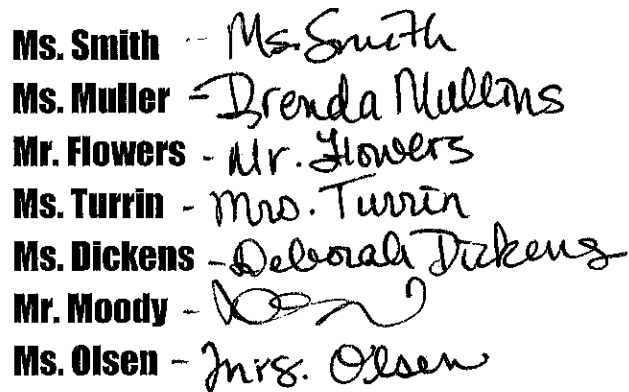 Ms. Smith - Ms. Smith
Ms. Muller - Brenda Mullins
Mr. Flowers - Mr. Flowers
Ms. Turrin - Mrs. Turrin
Ms. Dickens - Deborah Dickens
Mr. Moody -
Ms. Olsen - Mrs. Olsen